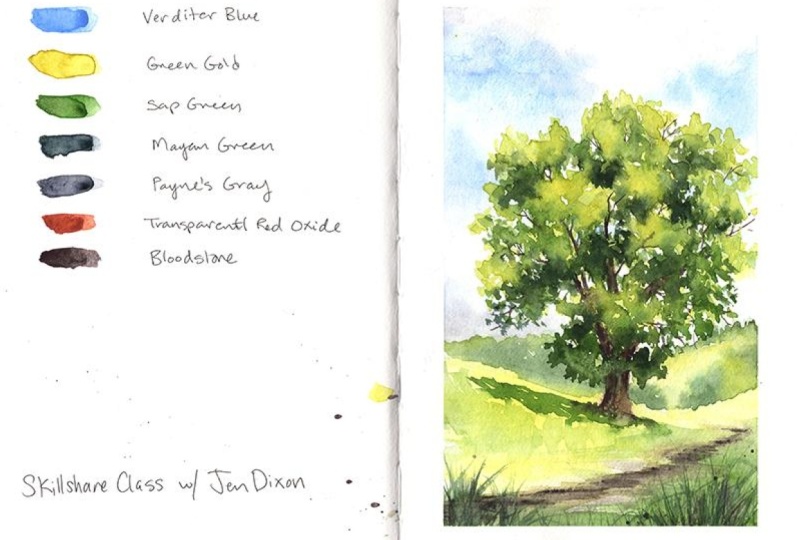 Verditer Blue
Green Gold
Sap Green
Mayan Green
Payne's Gray
Transparentl Red Oxide
Bloodstone
Skillshare Class w/ Jen Dixon